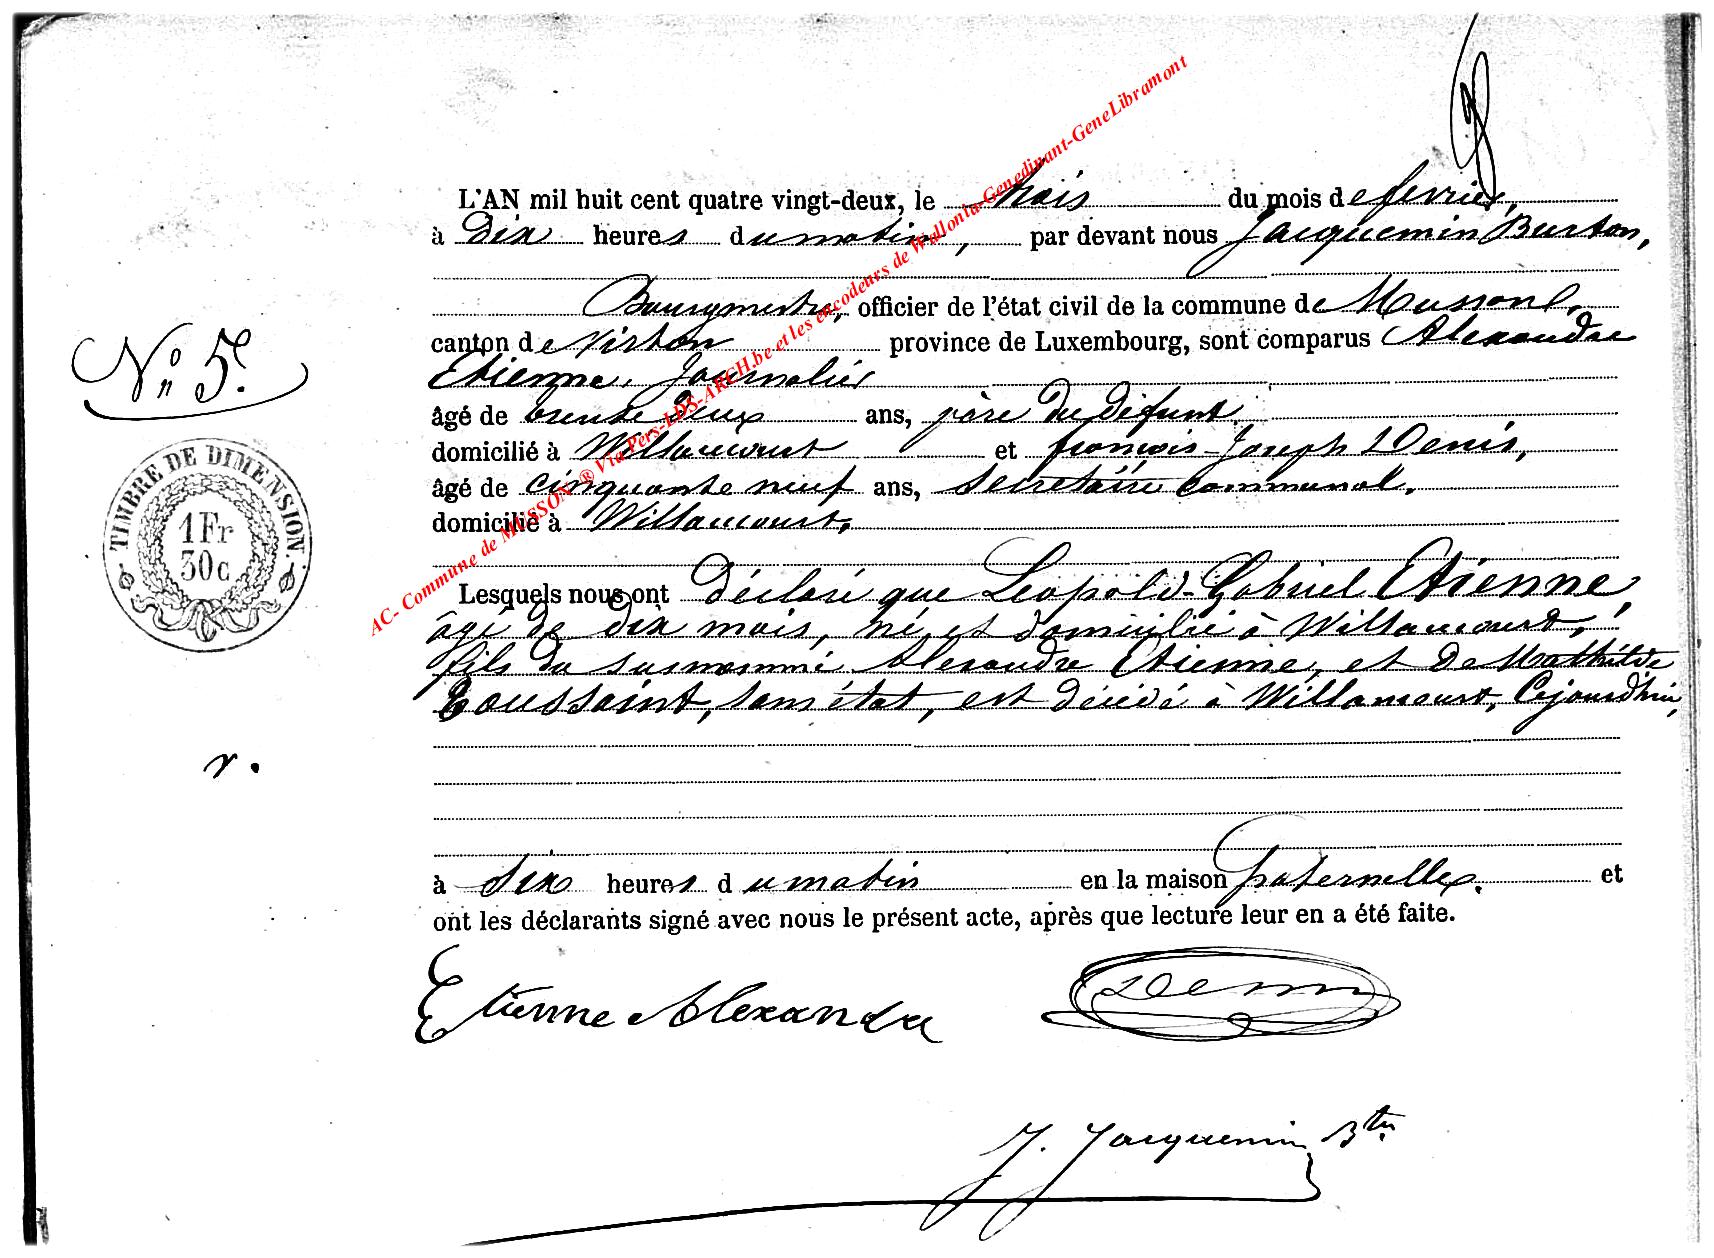 L'AN mil huit cent quatre vingt-deux, le trois du mois de fevrier,
à Dix heures du matin, par devant nous Jacquemin Burton,
Bourgmestre, officier de l'état civil de la commune de Musson,
canton de Virton province de Luxembourg, sont comparus Alexandre
Etienne, Journalier
âgé de trente deux ans, père du défunt,
domicilié à Willancourt et françois-Joseph Denis,
âgé de cinquante neuf ans, Secrétaire communal,
domicilié à Willancourt,
Lesquels nous ont déclaré que Léopold-Gabriel Etienne,
âgé de dix mois, né et domicilié à Willancourt,
fils du susnommé Alexandre Etienne, et de Mathilde
Toussaint, sans état, est décédé à Willancourt, Cejourd'hui,
à Six heures du matin en la maison paternelle, et
ont les déclarants signé avec nous le présent acte, après que lecture leur en a été faite.
Etienne Alexandre
Denis
J. Jacquemin Btn
No 5.
TIMBRE DE DIMENSION.
1 Fr
30 c
r.
AC- Commune de MUSSON ® Via Pers-LDS-ARCH.be et les encodeurs de Wallonia-Genedinant-GeneLibramont